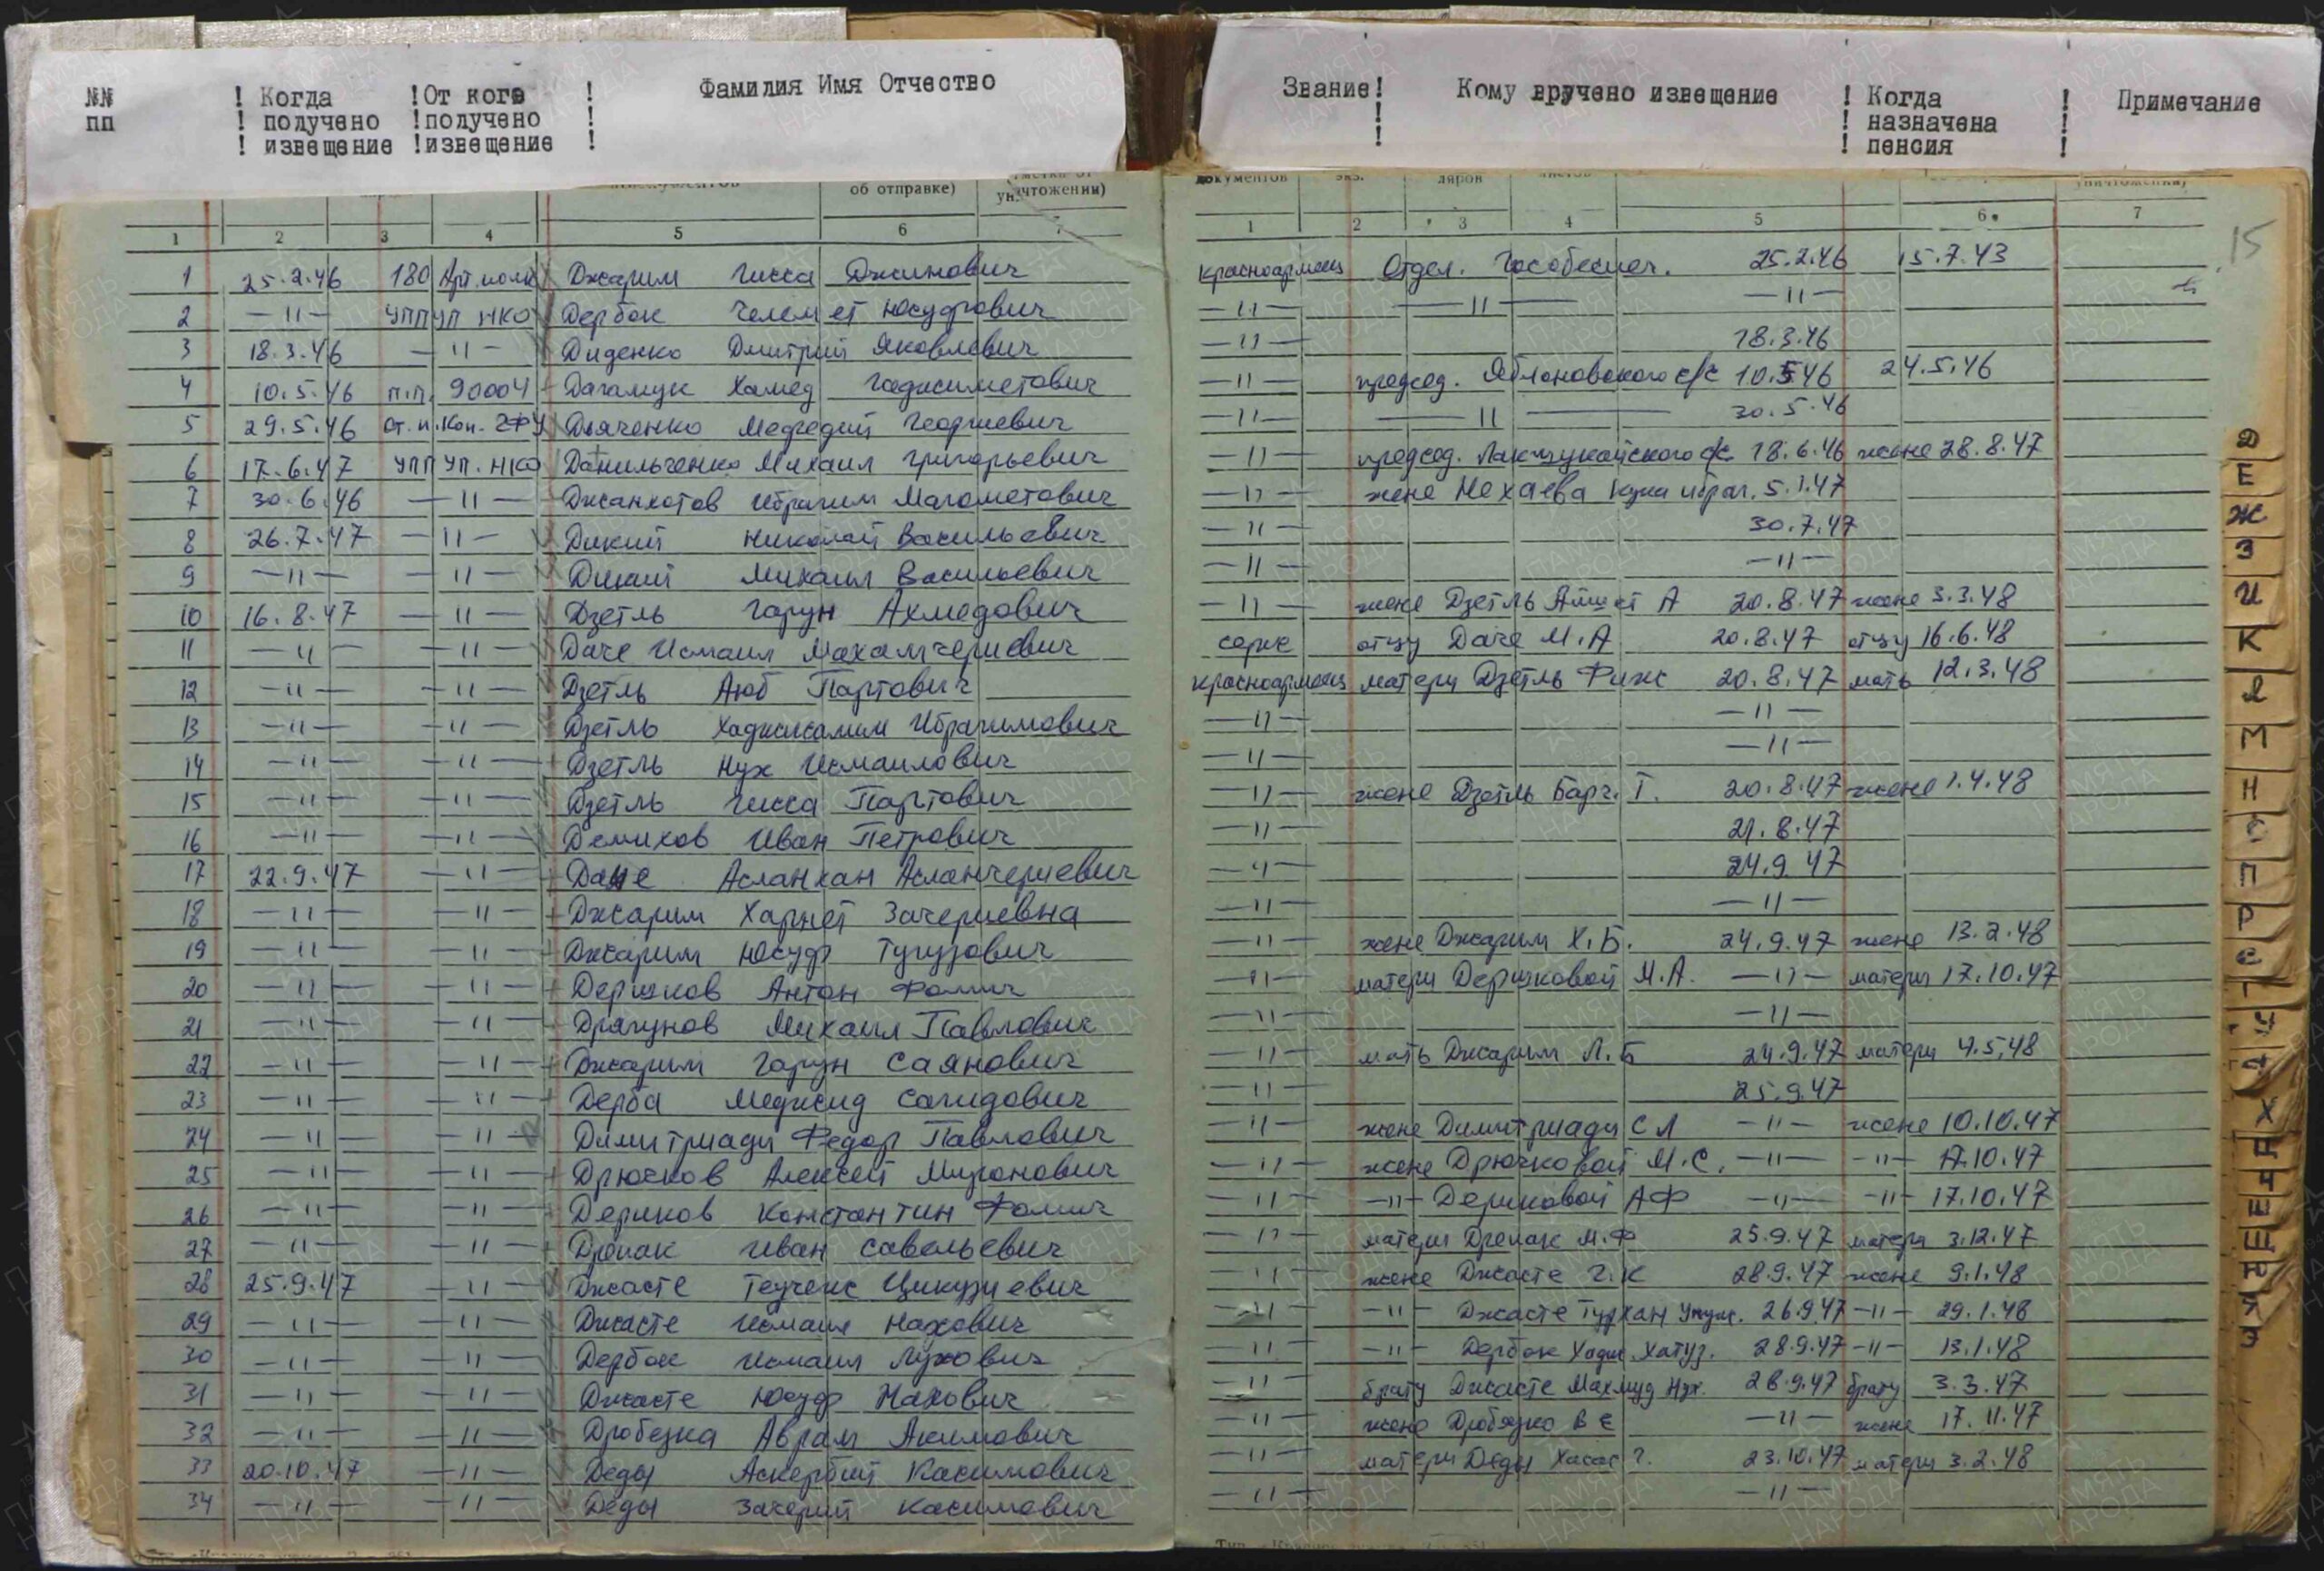 №№ пп ! Когда получено извещение ! От кого получено извещение ! Фамилия Имя Отчество
Звание ! Кому вручено извещение ! Когда назначена пенсия ! Примечание
об отправке) уничтожении)
документов экз. ляров листов уничтожении)
1 2 3 4 5 6 7
1 2 3 4 5 6 7
15
1 25.2.46 180 Арт. полк Джарим Чисса Джанович красноармеец Отдел. Гособеспеч. 25.2.46 15.7.43
2 —"— УППУП НКО Дербок Челемет Юсуфович —"— —"— —"—
3 18.3.46 —"— Диденко Дмитрий Яковлевич —"— 18.3.46
4 10.5.46 п.п. 90004 Дагамук Хамед Гаджиметович —"— председ. Яблоновского с/с 10.5.46 24.5.46
5 29.5.46 Дьяченко Мефедий Георгиевич —"— —"— 30.5.46
6 17.6.47 УППУП. НКО Данильченко Михаил Григорьевич —"— председ. Лакшукайского с/с 18.6.46 жене 28.8.47
7 30.6.46 —"— Джанхотов Ибрагим Магометович —"— жене Нехаева Кука Ибраг. 5.1.47
8 26.7.47 —"— Дикий Николай Васильевич —"— 30.7.47
9 —"— —"— Дикий Михаил Васильевич —"— —"—
10 16.8.47 —"— Дзетль Гарун Ахмедович —"— жене Дзетль Айшет А 20.8.47 жене 3.3.48
11 —"— —"— Даче Исмаил Махамчериевич серж отцу Даче М.А 20.8.47 отцу 16.6.48
12 —"— —"— Дзетль Аюб Партович красноармеец матери Дзетль Фиж 20.8.47 мать 12.3.48
13 —"— —"— Дзетль Хаджисалим Ибрагимович —"— —"—
14 —"— —"— Дзетль Нух Исмаилович —"— —"—
15 —"— —"— Дзетль Чисса Партович —"— жене Дзетль Барч. Т. 20.8.47 жене 1.4.48
16 —"— —"— Демихов Иван Петрович —"— 21.8.47
17 22.9.47 —"— Даче Асланхан Асланчериевич —"— 24.9.47
18 —"— —"— Джарим Харнет Зачериевна —"— —"—
19 —"— —"— Джарим Юсуф Тугузович —"— жене Джарим Х.Б. 24.9.47 жене 13.2.48
20 —"— —"— Дершков Антон Фомич —"— матери Дершковой М.А. —"— матери 17.10.47
21 —"— —"— Драгунов Михаил Павлович —"— —"—
22 —"— —"— Джарим Гарун Саянович —"— мать Джарим Л.Б 24.9.47 матери 4.5.48
23 —"— —"— Дерба Меджид Сагидович —"— 25.9.47
24 —"— —"— Димитриади Федор Павлович —"— жене Димитриади С Л —"— жене 10.10.47
25 —"— —"— Дрючков Алексей Миронович —"— жене Дрючковой М.С. —"— —"— 17.10.47
26 —"— —"— Дериков Константин Фомич —"— —"— Дериковой А Ф —"— —"— 17.10.47
27 —"— —"— Дрепак Иван Савельевич —"— матери Дрепак М.Ф 25.9.47 матери 3.12.47
28 25.9.47 —"— Джасте Теучеж Цикуриевич —"— жене Джасте Г.К 28.9.47 жене 9.1.48
29 —"— —"— Джасте Исмаил Нахович —"— —"— Джасте Гурхан 26.9.47 —"— 29.1.48
30 —"— —"— Дербок Исмаил Лухович —"— —"— Дербок Хадж. Хатуз. 28.9.47 —"— 13.1.48
31 —"— —"— Джасте Юсуф Нахович —"— брату Джасте Махмуд Нух. 28.9.47 брату 3.3.47
32 —"— —"— Дробезка Аврам Акимович —"— жене Дробязко В Е —"— жене 17.11.47
33 20.10.47 —"— Деды Аскербий Касимович —"— матери Деды Хасас Г. 23.10.47 матери 3.2.48
34 —"— —"— Деды Зачерий Касимович —"— —"—
Д
Е
Ж
З
И
К
Л
М
Н
О
П
Р
С
Т
У
Х
Ч
Ш
Щ
Я
Э
ПАМЯТЬ НАРОДА